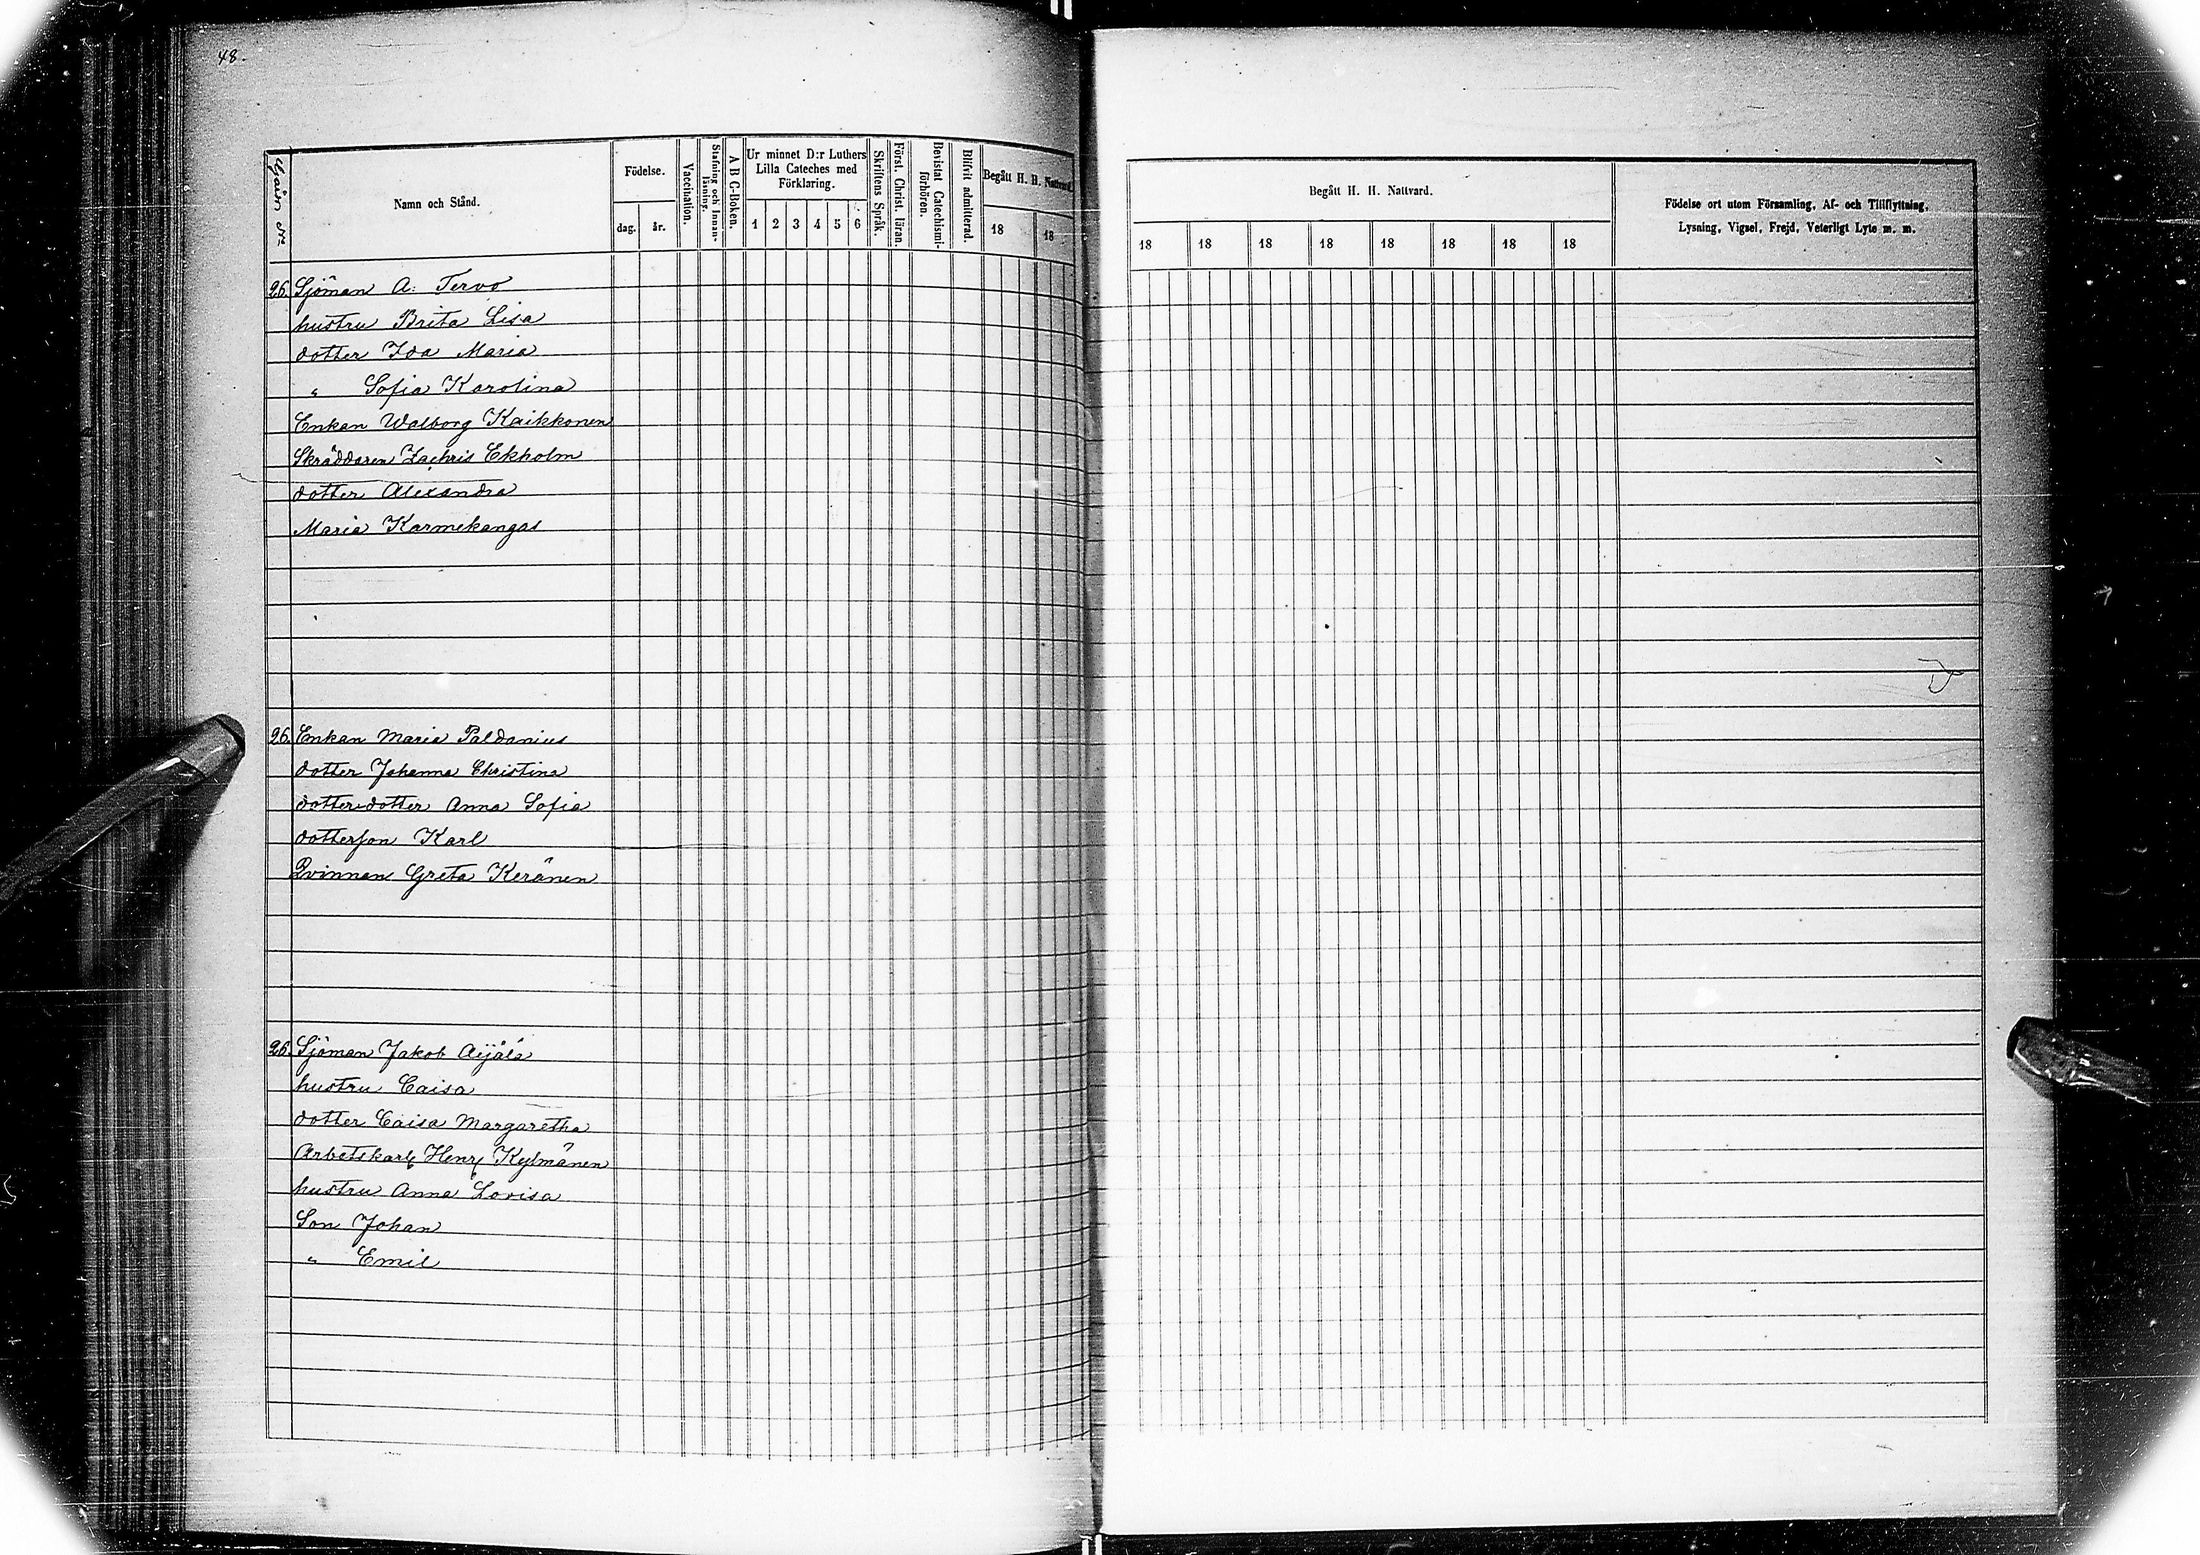 48.
Gårn Nr.
Namn och Stånd.
Födelse.
dag.
år.
Vaccination.
Stafning och Innan-läsning.
A B C-Boken.
Ur minnet D:r Luthers
Lilla Cateches med
Förklaring.
1 2 3 4 5 6
Skriftens Språk.
Först. Christ. läran.
Bevistat Catechismi-förhören.
Blifvit admitterad.
Begått H. H. Nattvard.
18 18
Begått H. H. Nattvard.
18 18 18 18 18 18 18 18
Födelse ort utom Församling, Af- och Tillflyttning,
Lysning, Vigsel, Frejd, Veterligt Lyte m. m.
26. Sjöman A: Tervo
hustru Brita Lisa
dotter Ida Maria
" Sofia Karolina
Enkan Walborg Kaikkonen
Skräddaren Zachris Ekholm
dotter Alexandra
Maria Karmekangas
26. Enkan Maria Paldanius
dotter Johanna Christina
dotterdotter Anna Sofia
dotterson Karl
Qvinnan Greta Keränen
26. Sjöman Jakob Äijälä
hustru Caisa
dotter Caisa Margaretha
Arbetskarl Henr Kylmänen
hustru Anna Lovisa
Son Johan
" Emil